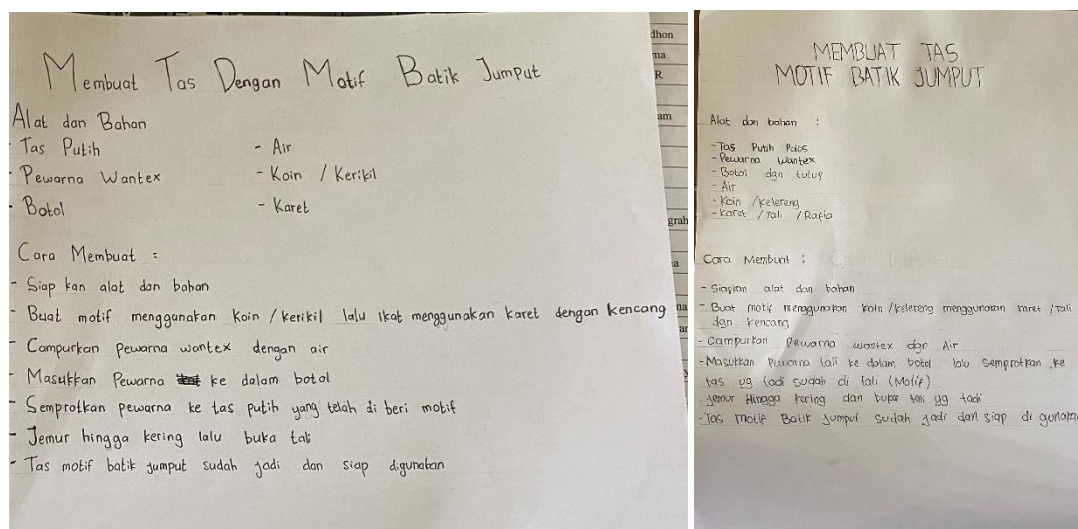 Membuat Tas Dengan Motif Batik Jumput
Alat dan Bahan
- Tas Putih
- Pewarna Wantex
- Botol
- Air
- Koin / Kerikil
- Karet
Cara Membuat :
- Siap kan alat dan bahan
- Buat motif menggunakan Koin / Kerikil lalu ikat menggunakan karet dengan kencang
- Campurkan pewarna wantex dengan air
- Masukkan Pewarna ke dalam botol
- Semprotkan pewarna ke tas putih yang telah di beri motif
- Jemur hingga kering lalu buka tali
- Tas motif batik jumput sudah jadi dan siap digunakan
dhon
ma
R
am
grah
a
na
ar
MEMBUAT TAS
MOTIF BATIK JUMPUT
Alat dan bahan :
- Tas Putih Polos
- Pewarna Wantex
- Botol dgn tutup
- Air
- Koin / Kelereng
- Karet / Tali / Rafia
Cara Membuat :
- Siapkan alat dan bahan
- Buat motif menggunakan koin / kelereng menggunakan karet / Tali
dgn kencang
- Campurkan Pewarna wantex dgr Air
- Masukkan Pewarna tali ke dalam botol lalu semprotkan ke
tas yg tadi sudah di tali (Motif)
- Jemur Hingga kering dan buka tali yg tadi
- Tas motif Batik Jumput sudah jadi dan siap di gunakan